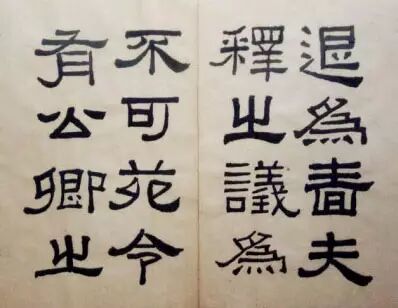 退爲嗇夫
釋之議爲
不可苑令
有公卿之